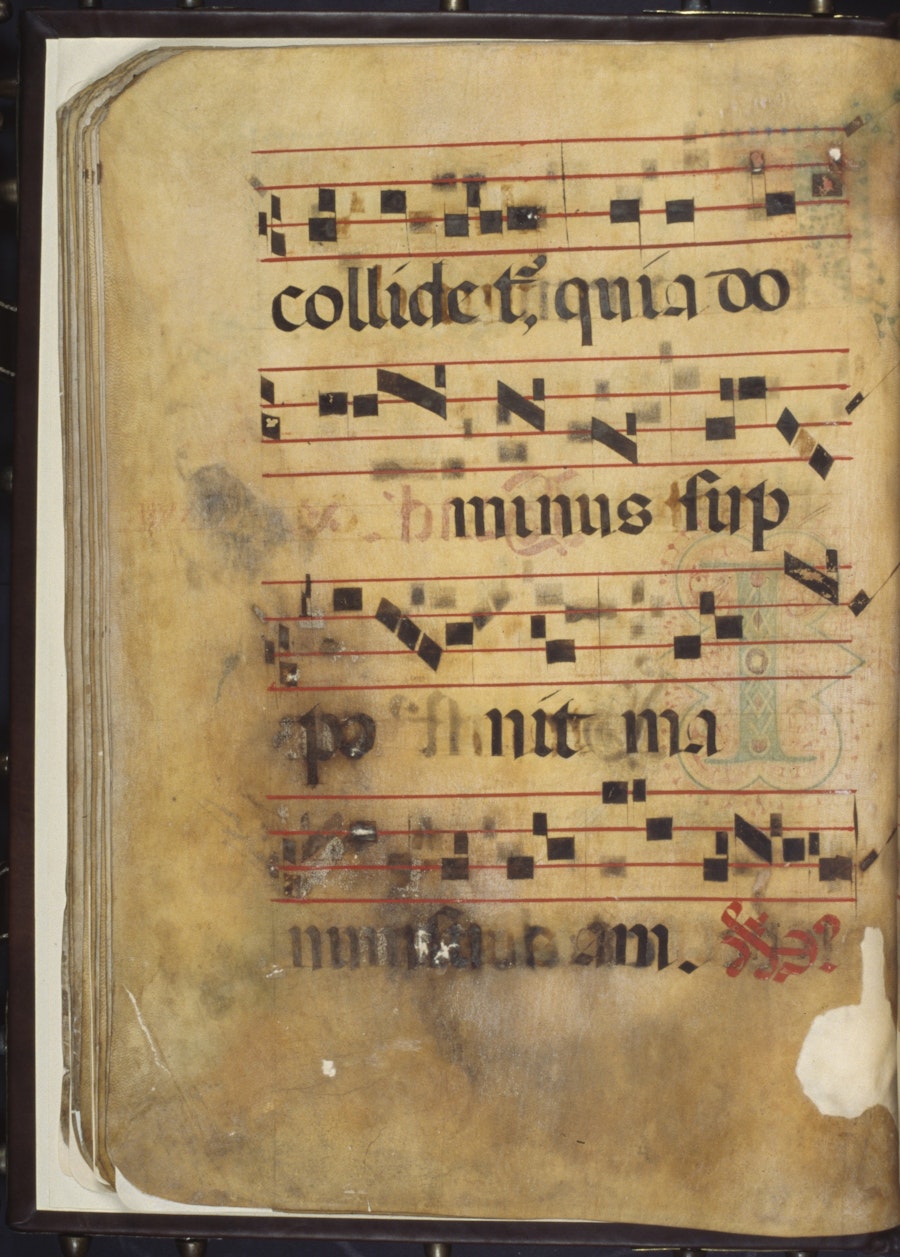 collidet᷑, quia do
minus sup
po nit ma
num suam.